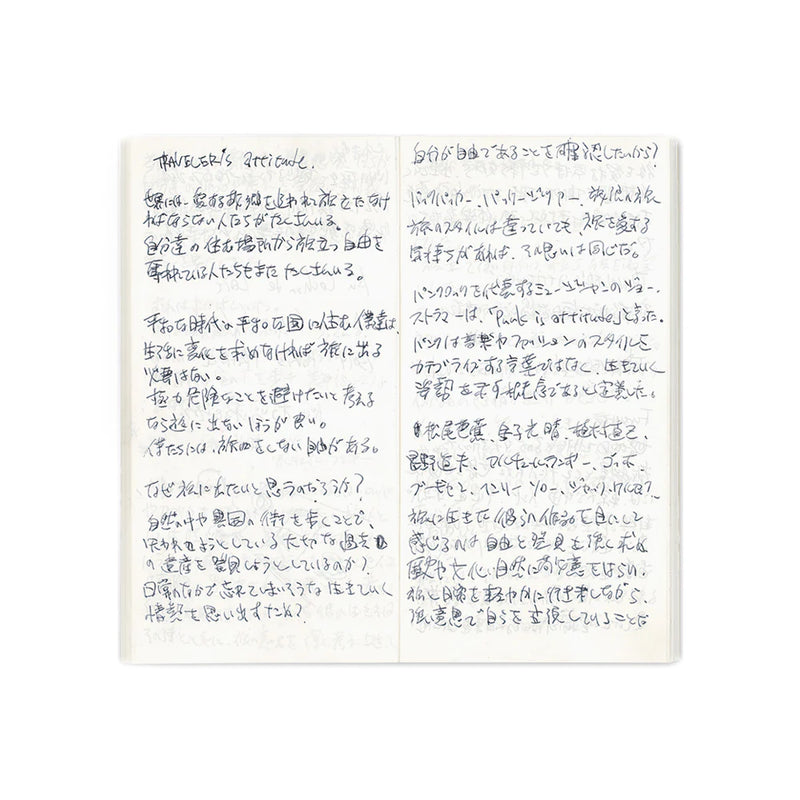 TRAVELER's attitude.
世界には、愛する故郷を追われ旅をたたなけ
ればならない人たちがたくさんいる。
自分達の住む場所から旅立つ自由を
奪われている人たちもまた たくさんいる。
平和な時代の平和な国に住む僕達は、
生活に変化を求めなければ旅に出る
必要はない。
極力危険なことを避けたいと考える
なら旅に出ないほうが良い。
僕たちには、旅をしない自由がある。
なぜ旅に出たいと思うのだろうか?
自然の中や異国の街を歩くことで、
失われようとしている大切な過去
の遺産を発見しようとしているのか?
日常のなかで忘れてしまいそうな 生きていく
情熱を思い出すため?
自分が自由であることを確認したいから?
バックパッカー、パッケージツアー、旅
旅のスタイルは違っていても、旅を愛する
気持ちがあれば、その思いは同じだ。
パンクロックを代表するミュージシャンのジョー・
ストラマーは、「Punk is attitude」と言った。
パンクは音楽やファッションのスタイルを
カテゴライズする言葉ではなく、生きていく
姿勢を示す概念であると定義した。
松尾芭蕉、金子光晴、植村直己、
星野道夫、アルチュール・ランボー、ゴッホ、
ゴーギャン、ヘンリー・ソロー、ジャック・ケルアック、
旅に生きた彼らの作品を目にして
感じるのは 自由と発見を強く求め
歴史や文化、自然に敬意をはらい、
旅と日常を軽やかに行き来しながら、
強い意思で自らを主張していることだ